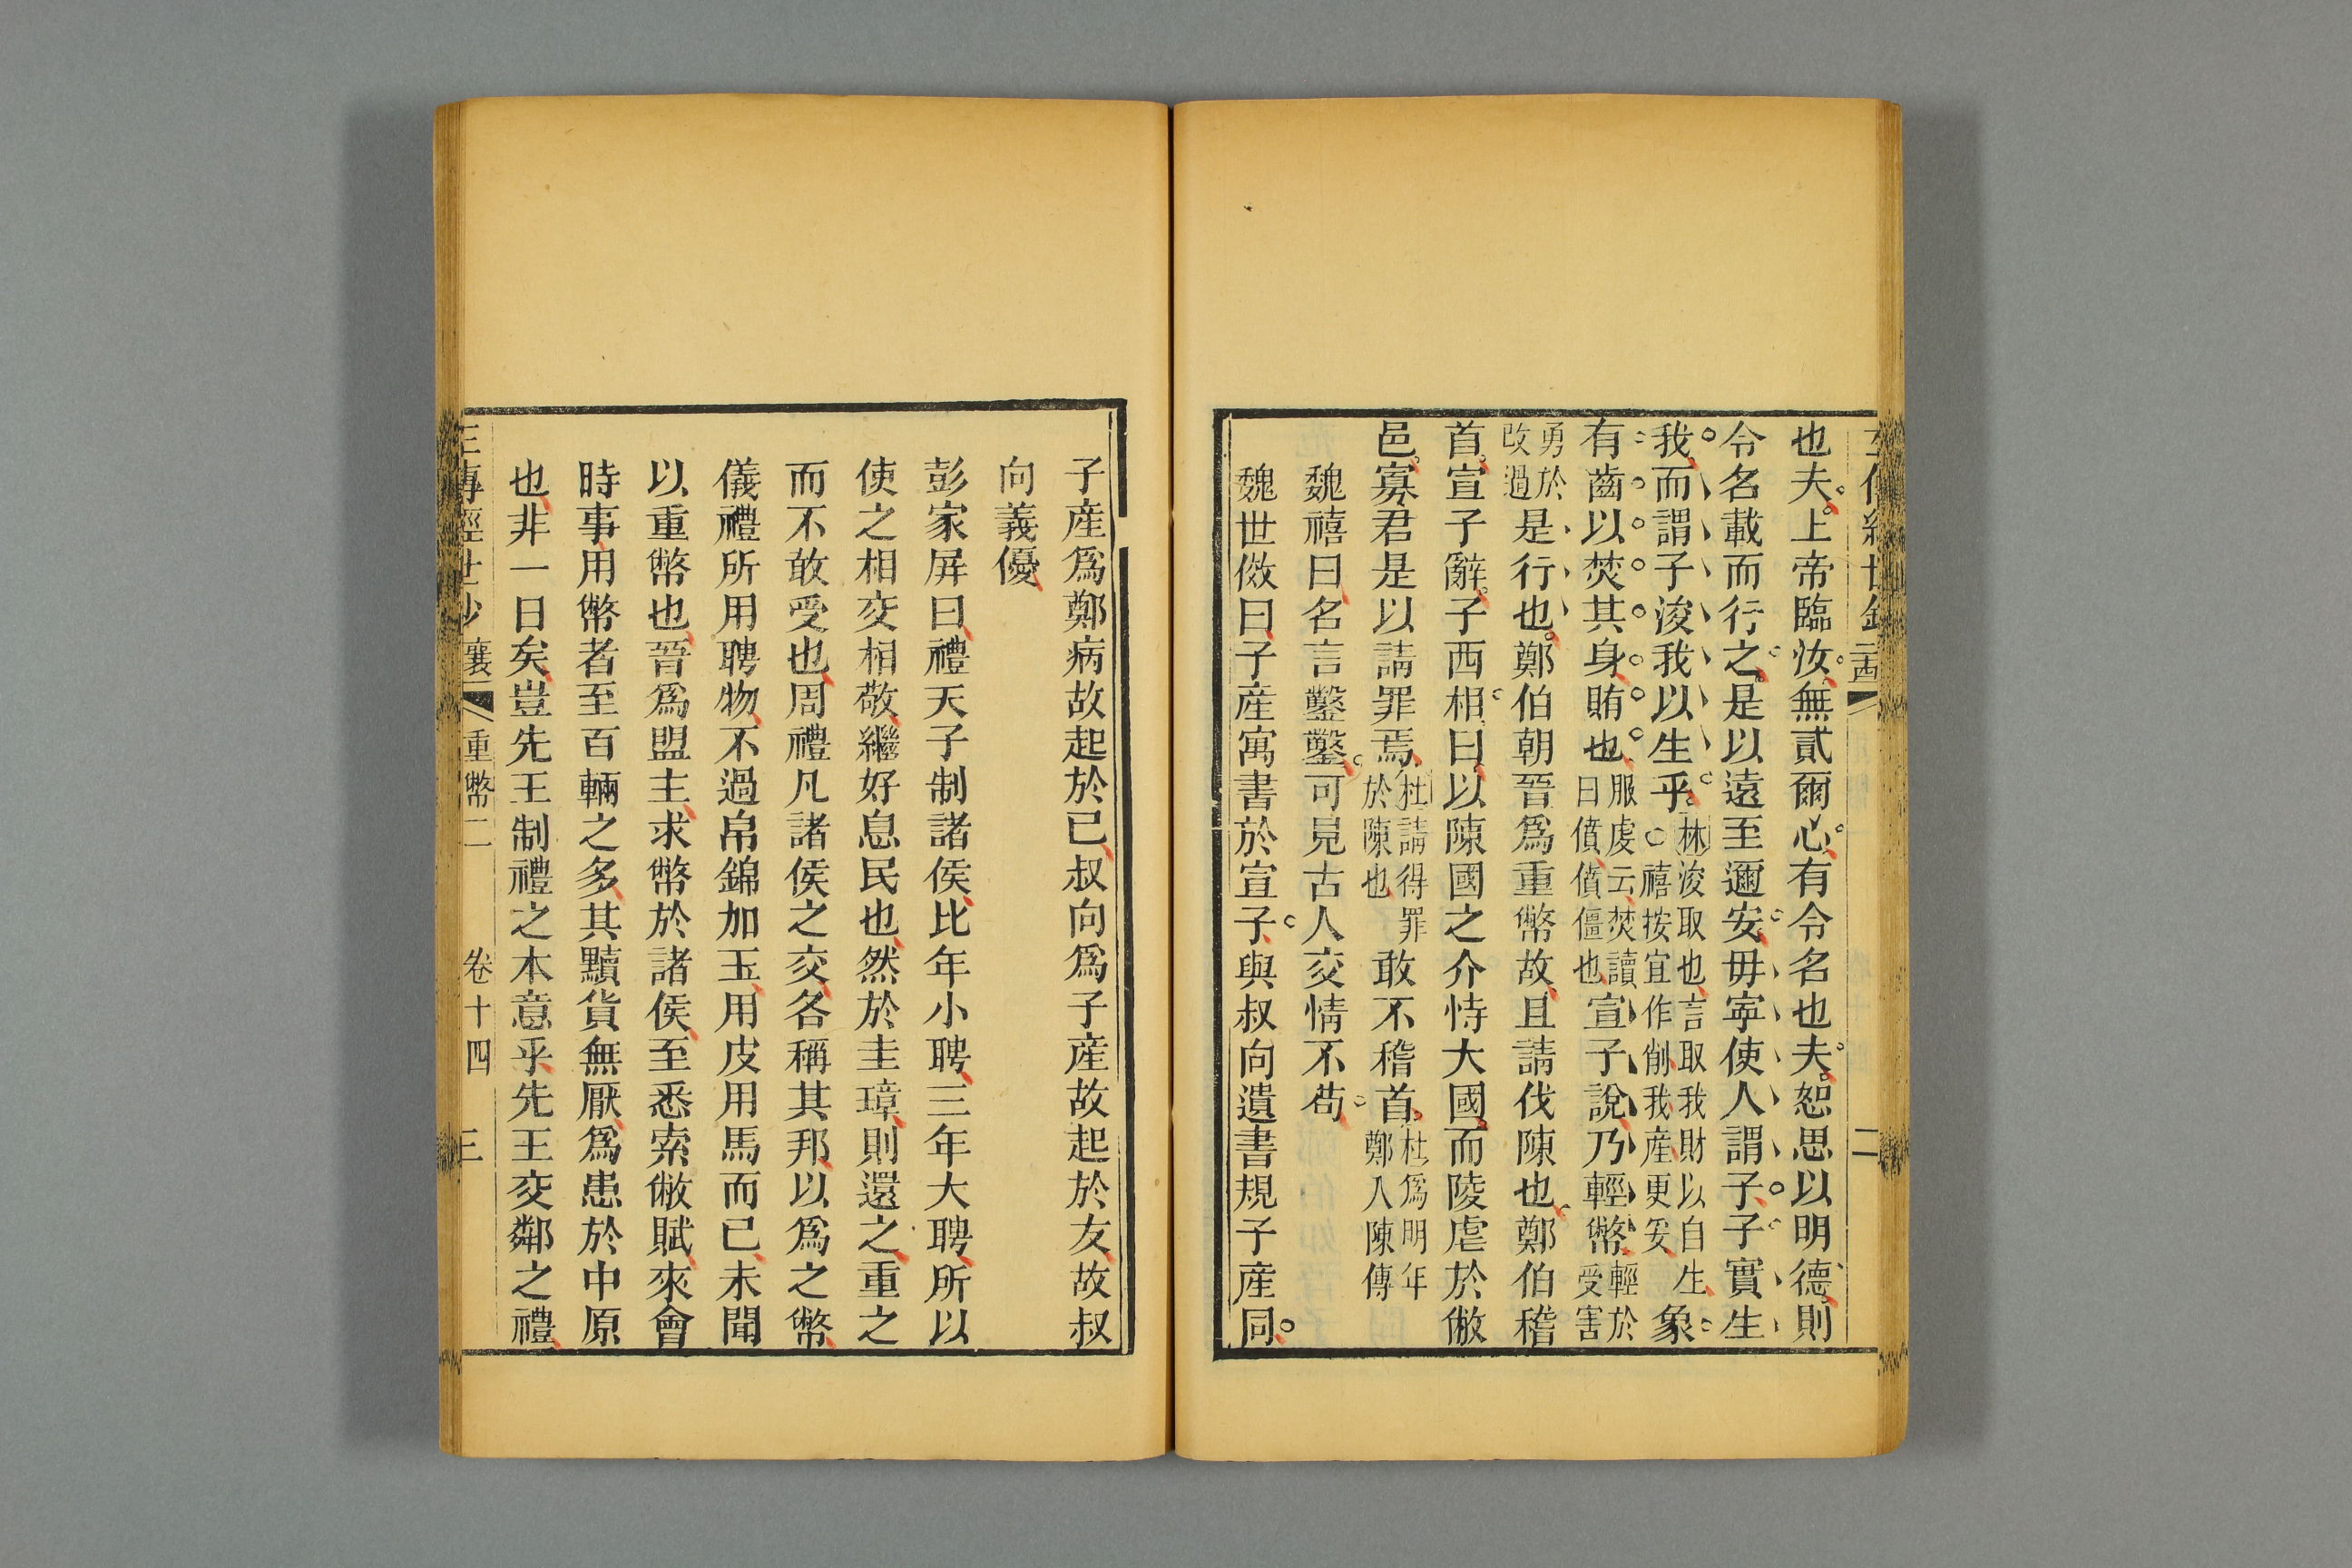 也夫上帝臨汝無貳爾心有令名也夫恕思以明德則
令名載而行之是以遠至邇安毋寧使人謂子子實生
我而謂子浚我以生乎林浚取也言取我財以自生○禧按宜作削我産更妥象
有齒以焚其身賄也服虔云焚讀曰僨僨僵也宣子說乃輕幣輕於受害
勇於改過是行也鄭伯朝晉爲重幣故且請伐陳也鄭伯稽
首宣子辭子西相曰以陳國之介恃大國而陵虐於敝
邑寡君是以請罪焉杜請得罪於陳也敢不稽首杜爲明年鄭入陳傳
魏禧曰名言鑿鑿可見古人交情不茍
魏世傚曰子產寓書於宣子與叔向遺書規子產同
子產爲鄭病故起於已叔向爲子產故起於友故叔
向義優
彭家屏曰禮天子制諸侯比年小聘三年大聘所以
使之相交相敬繼好息民也然於圭璋則還之重之
而不敢受也周禮凡諸侯之交各稱其邦以爲之幣
儀禮所用聘物不過帛錦加玉用皮用馬而已未聞
以重幣也晉爲盟主求幣於諸侯至悉索敝賦來會
時事用幣者至百輛之多其黷貨無厭爲患於中原
也非一日矣豈先王制禮之本意乎先王交鄰之禮
襄 重幣二 卷十四 三